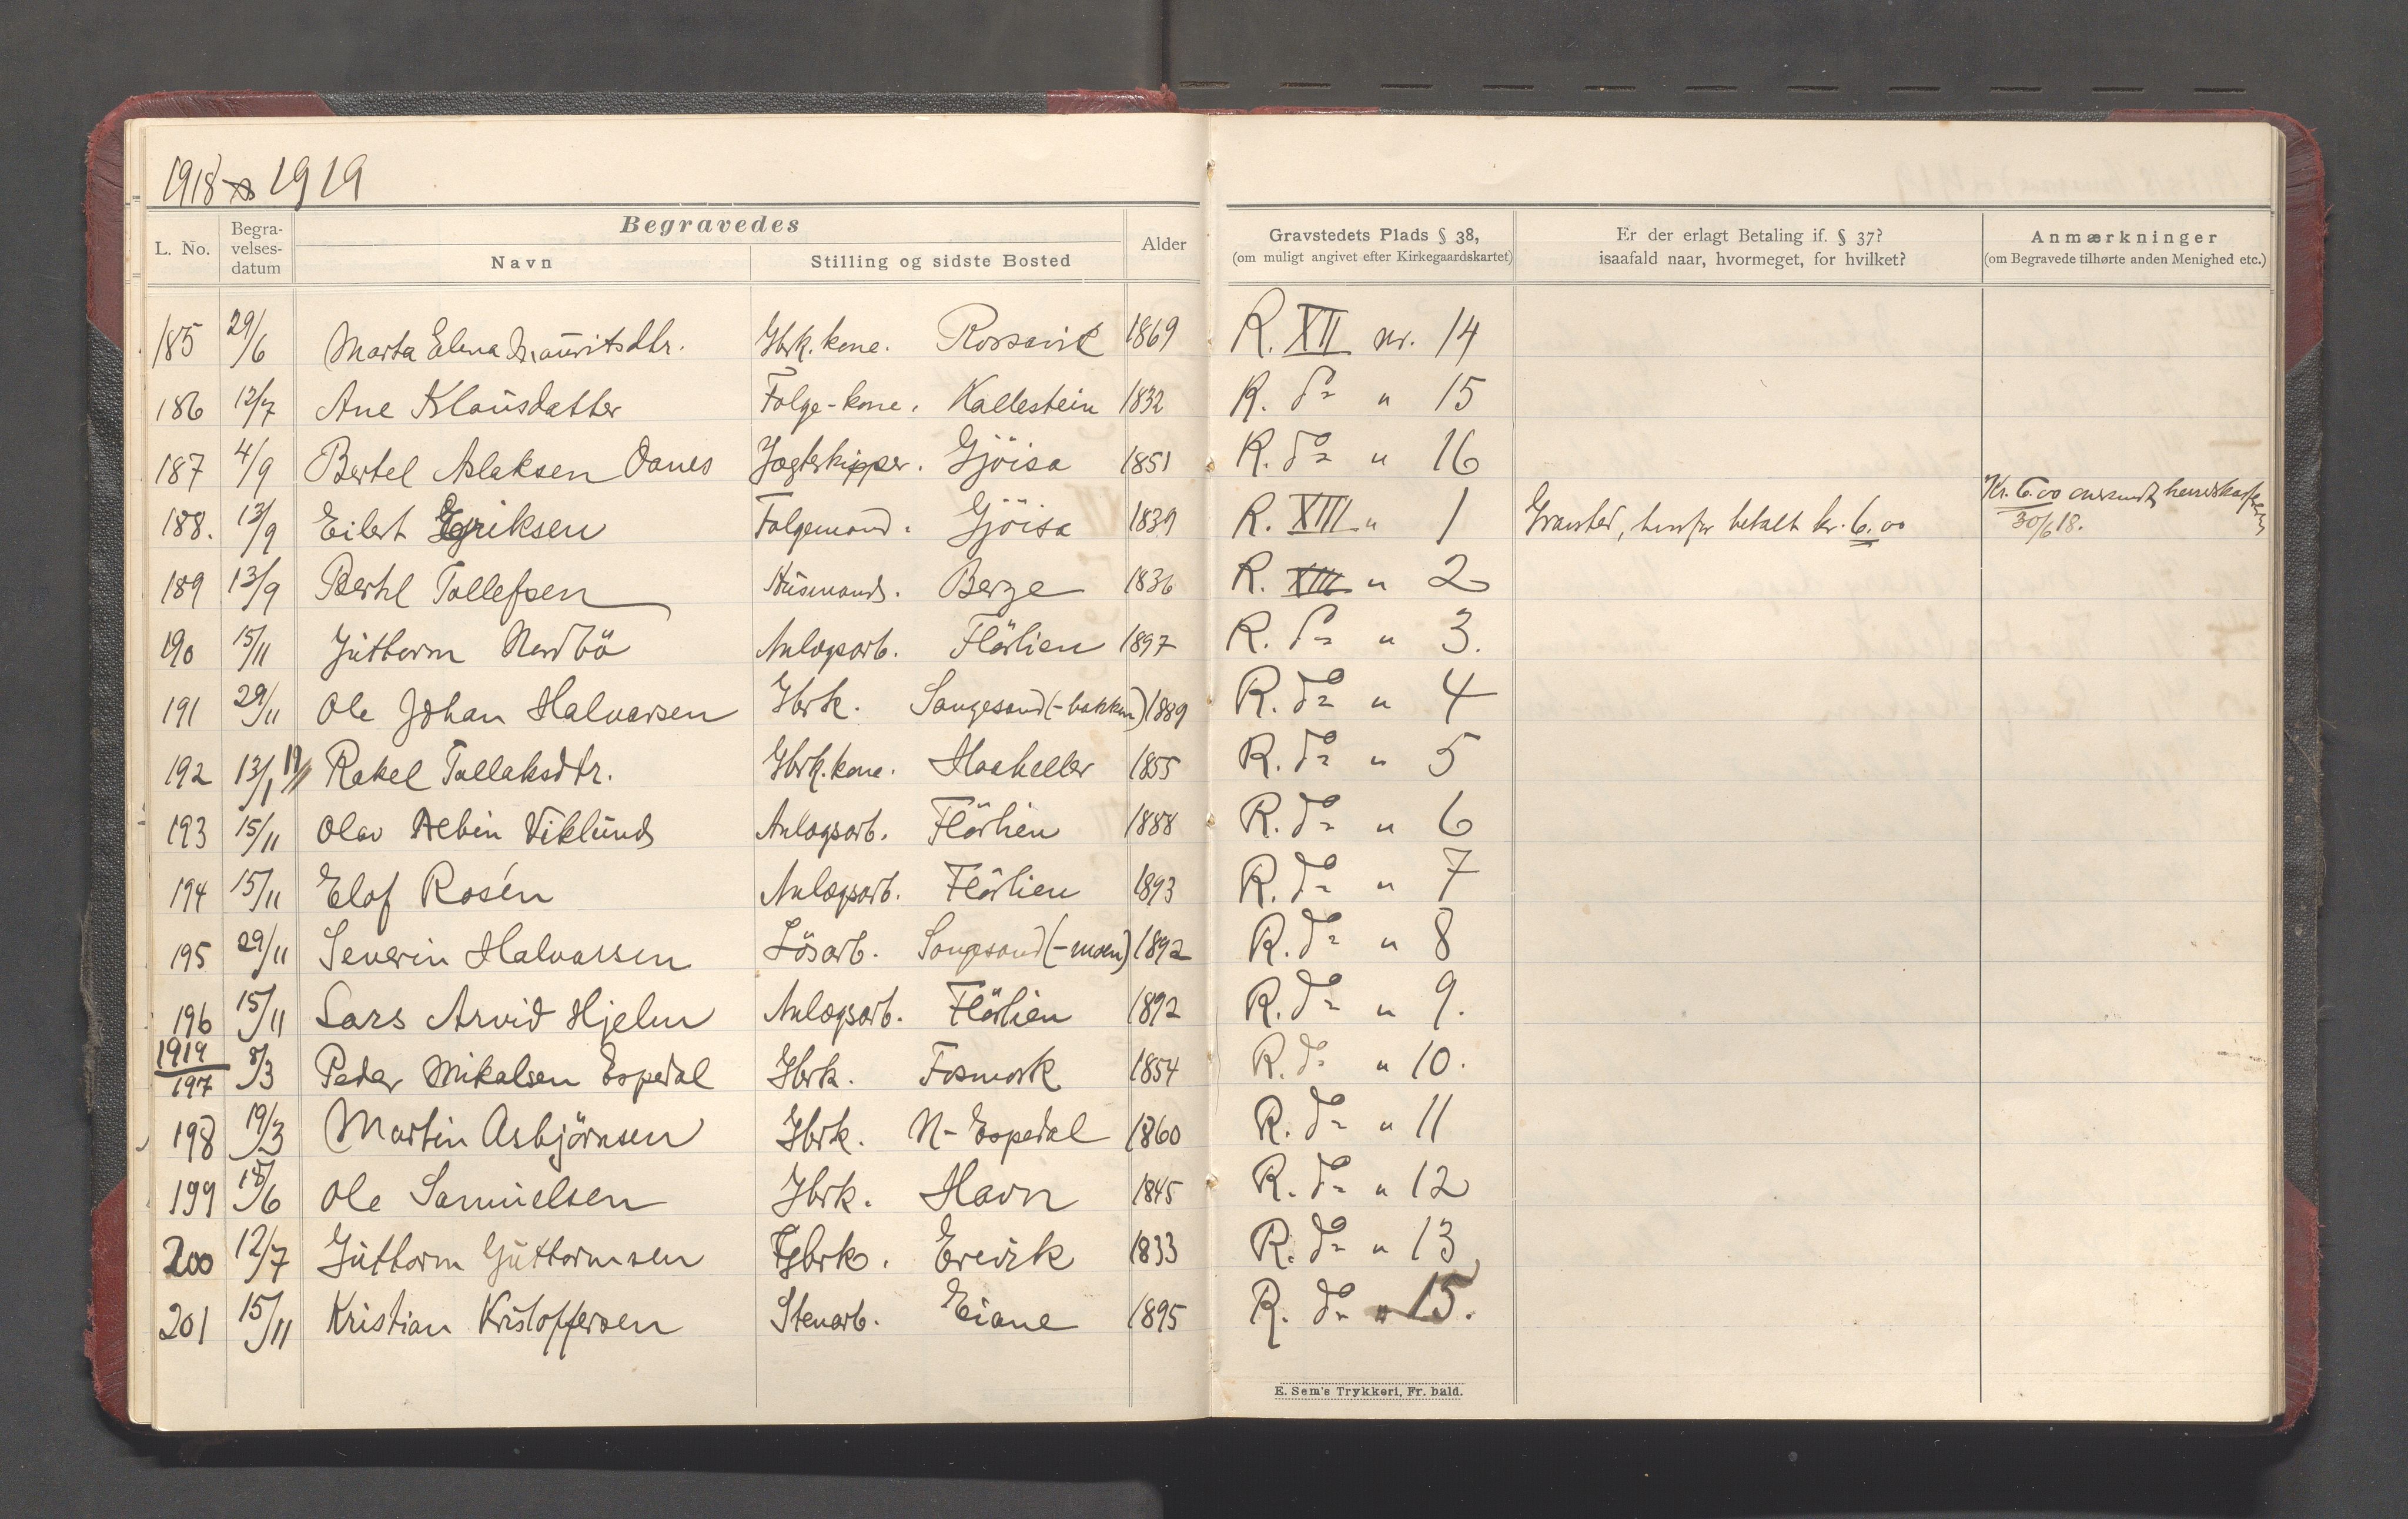 1918 1919
Begravedes
L. No. Begra-velses-datum Navn Stilling og sidste Bosted Alder Gravstedets Plads § 38, (om muligt angivet efter Kirkegaardskartet) Er der erlagt Betaling if. § 37? isaafald naar, hvormeget, for hvilket? Anmærkninger (om Begravede tilhørte anden Menighed etc.)
185 29/6 Marta Elena Mauritsdtr. Gbrk. kone. Rossavik 1869 R. XII nr. 14
186 12/7 Ane Klausdatter Folge-kone. Kallestein 1832 R. do " 15
187 4/9 Bertel Aslaksen Oanes Jagtskipper. Gjöisa 1851 R. do " 16
188. 13/9 Eilert Eriksen Folgemand. Gjöisa 1839 R. XIII " 1 Gravsted, herfor betalt kr. 6.00 Kr. 6.00 30/6 18.
189 13/9 Bertel Tollefsen Husmand. Berge 1836 R. XIII " 2
190 15/11 Guttorm Nordbö Anlægsarb. Flörlien 1897 R. do " 3.
191 29/11 Ole Johan Halvorsen Gbrk. Songesand (-bakken) 1889 R. do " 4
192 13/1 19 Rakel Tollaksdtr. Gbrk. kone. Haaheller 1855 R. do " 5
193 15/11 Olav Albin Viklund Anlogsarb. Flörlien 1888 R. do " 6
194 15/11 Elof Rosén Anlægsarb. Flörlien 1893 R. do " 7
195 29/11 Severin Halvorsen Lösarb. Songesand (-moen) 1892 R. do " 8
196 15/11 Lars Arvid Hjelm Anlogsarb. Flörlien 1892 R. do " 9.
1919
197 8/3 Peder Mikalsen Espedal Gbrk. Fosmork 1854 R. do " 10.
198 19/3 Martin Asbjörnsen Gbrk. N-Espedal 1860 R. do " 11
199 18/6 Ole Samuelsen Gbrk. Havn 1845 R. do " 12
200 12/7 Guttorm Guttormsen Fgbrk. Erevik 1833 R. do " 13
201 15/11 Kristian Kristoffersen Stenarb. Eiane 1895 R. do " 15.
E. Sem's Trykkeri, Fr. hald.